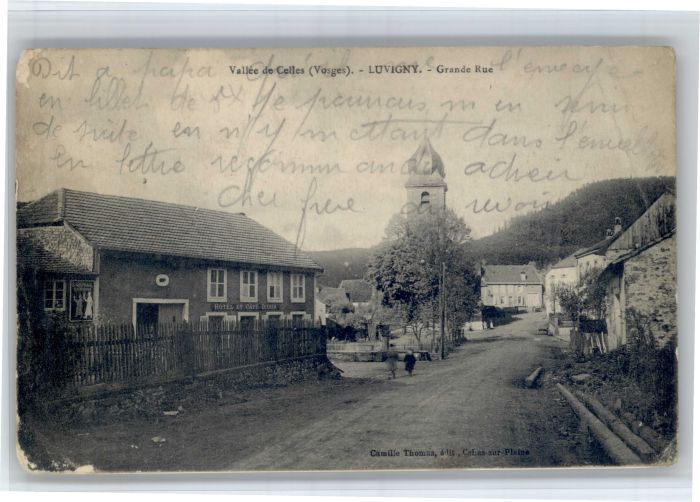 Vallée de Celles (Vosges). - LUVIGNY. - Grande Rue
Dit a papa de l'envoye
en billet de je pourrais m en servi
de suite en n'y mettant dans l'envelo
En lettre recommandé adieu
cher frère au revoir
HOTEL ET CAFÉ DIDIER
Camille Thomas, édit., Celles-sur-Plaine